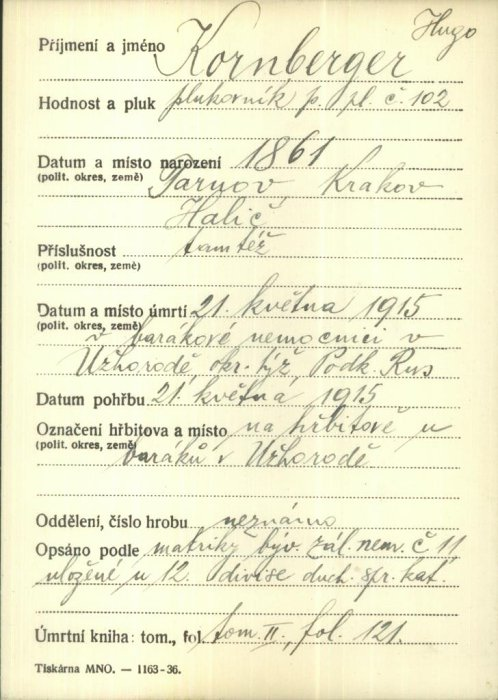 Hugo
Příjmení a jméno Kornberger
Hodnost a pluk plukovník p. pl. č. 102
Datum a místo narození 1861
(polit. okres, země) Tarnov, Krakov
Halič
Příslušnost tamtéž
(polit. okres, země)
Datum a místo úmrtí 21. května 1915
(polit. okres, země) v barákové nemocnici v
Užhorodě, okr. týž, Podk. Rus
Datum pohřbu 21. května 1915
Označení hřbitova a místo na hřbitově u
(polit. okres, země) baráků v Užhorodě
Oddělení, číslo hrobu neznámo
Opsáno podle matriky býv. zál. nem. č. 11
uložené u 12. divise duch. spr. kat.
Úmrtní kniha: tom., fol. tom. II., fol. 121.
Tiskárna MNO. — 1163-36.